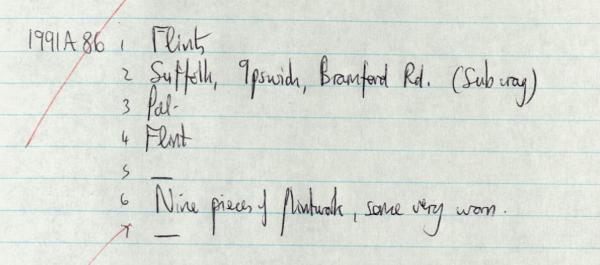 1991A86 1 Flints
2 Suffolk, Ipswich, Bramford Rd. (Subway)
3 Pal.
4 Flint
5 —
6 Nine pieces of flintwork, some very worn.
7 —